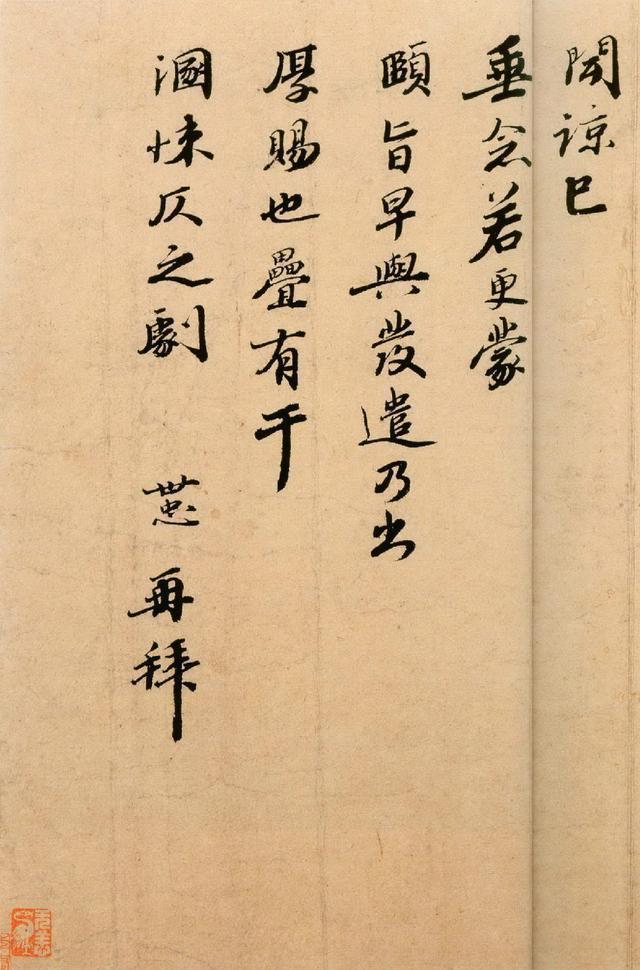 聞諒已
垂念若更蒙
頤旨早與發遣乃出
厚賜也疊有干
溷悚仄之劇 再拜